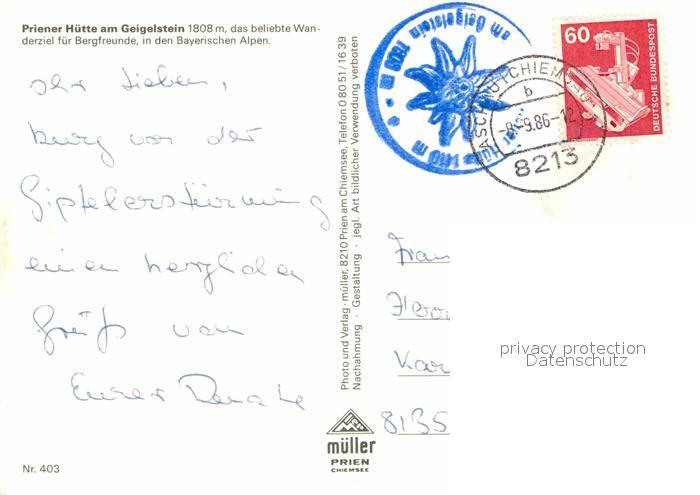 Priener Hütte am Geigelstein 1808 m, das beliebte Wan-
derziel für Bergfreunde, in den Bayerischen Alpen.
Ihr Lieben,
kurz vor der
Gipfelerstürmung
einen herzlichen
Gruß von
Eurer Renate
Nr. 403
Photo und Verlag · müller, 8210 Prien am Chiemsee, Telefon 0 80 51 / 16 39
Nachahmung · Gestaltung · jegl. Art bildlicher Verwendung verboten
müller
PRIEN
CHIEMSEE
am Geigelstein 1808 m
Hütte 1410 m
b
-9.86-12
8213
60
DEUTSCHE BUNDESPOST
Frau
Kar
8135
privacy protection
Datenschutz